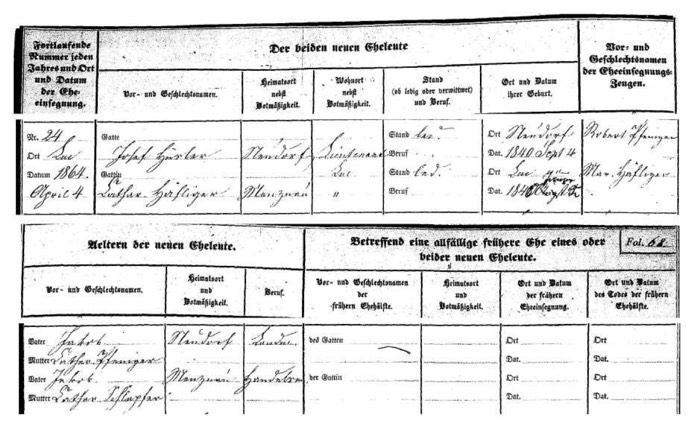 Fortlaufende
Nummer jeden
Jahres und Ort
und Datum
der Ehe-
einsegnung.
Der beiden neuen Eheleute
Vor- und Geschlechtsnamen.
Heimatsort
nebst
Botmäßigkeit.
Wohnort
nebst
Botmäßigkeit.
Stand
(ob ledig oder verwittwet)
und Beruf.
Ort und Datum
ihrer Geburt.
Vor- und
Geschlechtsnamen
der Eheeinsegnungs-
Zeugen.
Nr. 24 Gatte Stand led. Ort Neudorf Robert Pfenniger
Ort Luc Josef Neudorf Beruf Dat. 1840 Sept 4
Datum 1864. Gattin Luc Stand led. Ort Luc Mar. Häfliger
April 4 Cathar. Häfliger Menznau " Beruf Dat.
Aeltern der neuen Eheleute.
Betreffend eine allfällige frühere Ehe eines oder
beider neuen Eheleute.
Fol. 61
Vor- und Geschlechtsnamen.
Heimatsort
und
Botmäßigkeit.
Beruf.
Vor- und Geschlechtsnamen
der
frühern Ehehälfte.
Heimatsort
und
Botmäßigkeit.
Ort und Datum
der frühern
Eheeinsegnung.
Ort und Datum
des Todes der frühern
Ehehälfte.
Vater Jakob Neudorf des Gatten Ort Ort
Mutter Cathar. Pfenniger Dat. Dat.
Vater Jakob. Menznau der Gattin Ort Ort
Mutter Cathar Dat. Dat.